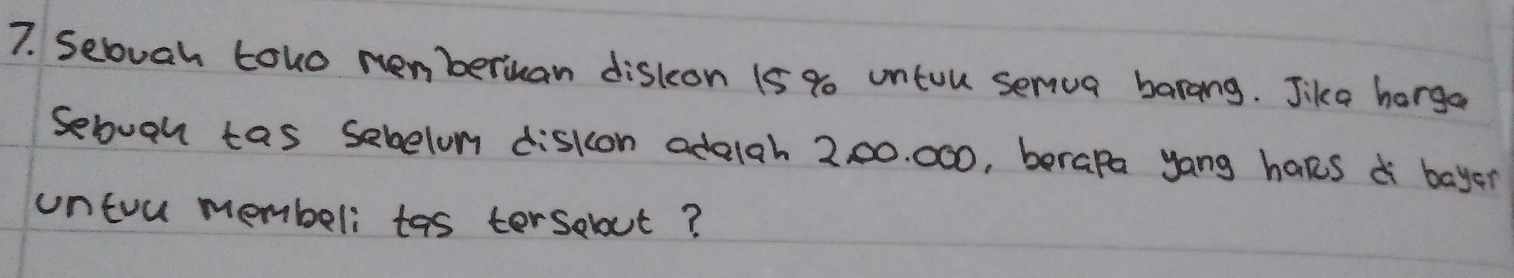 7. Sebuah toko memberikan diskon 15% untuk semua barang. Jika harga
sebuah tas sebelum diskon adalah 200.000, berapa yang harus di bayar
untuk membeli tas tersebut?